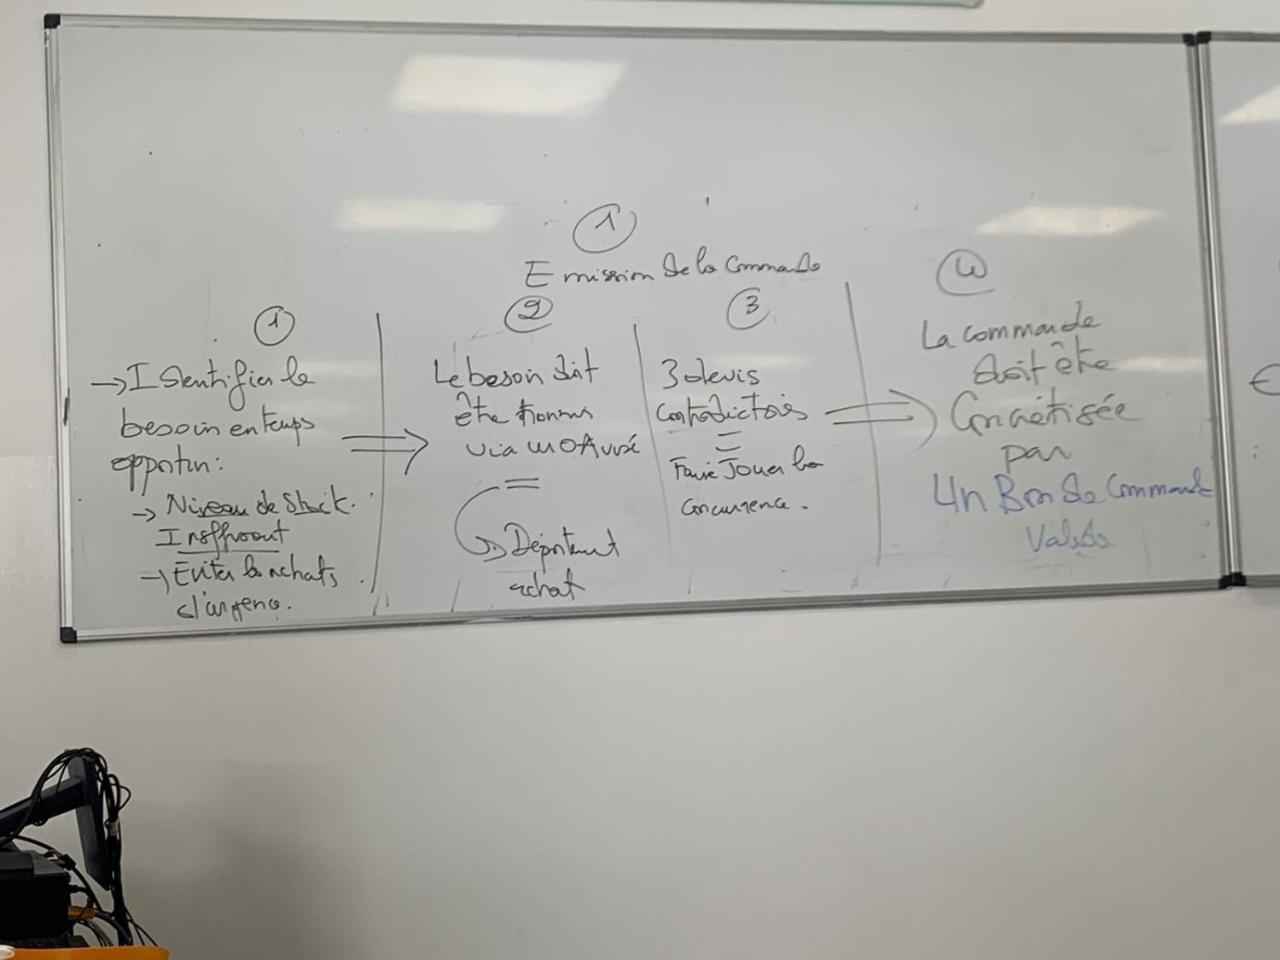 1
Emission de la commande
1
→ Identifier le
besoin en temps
opportun :
→ Niveau de stock.
Insuffisant
→ Eviter les achats
d'urgence.
2
Le besoin doit
être
via un
Département
achat
3
3 devis
contradictoires
=
Faire Jouer la
concurrence.
4
La commande
doit être
Concrétisée
par
Un Bon de Commande
Validé